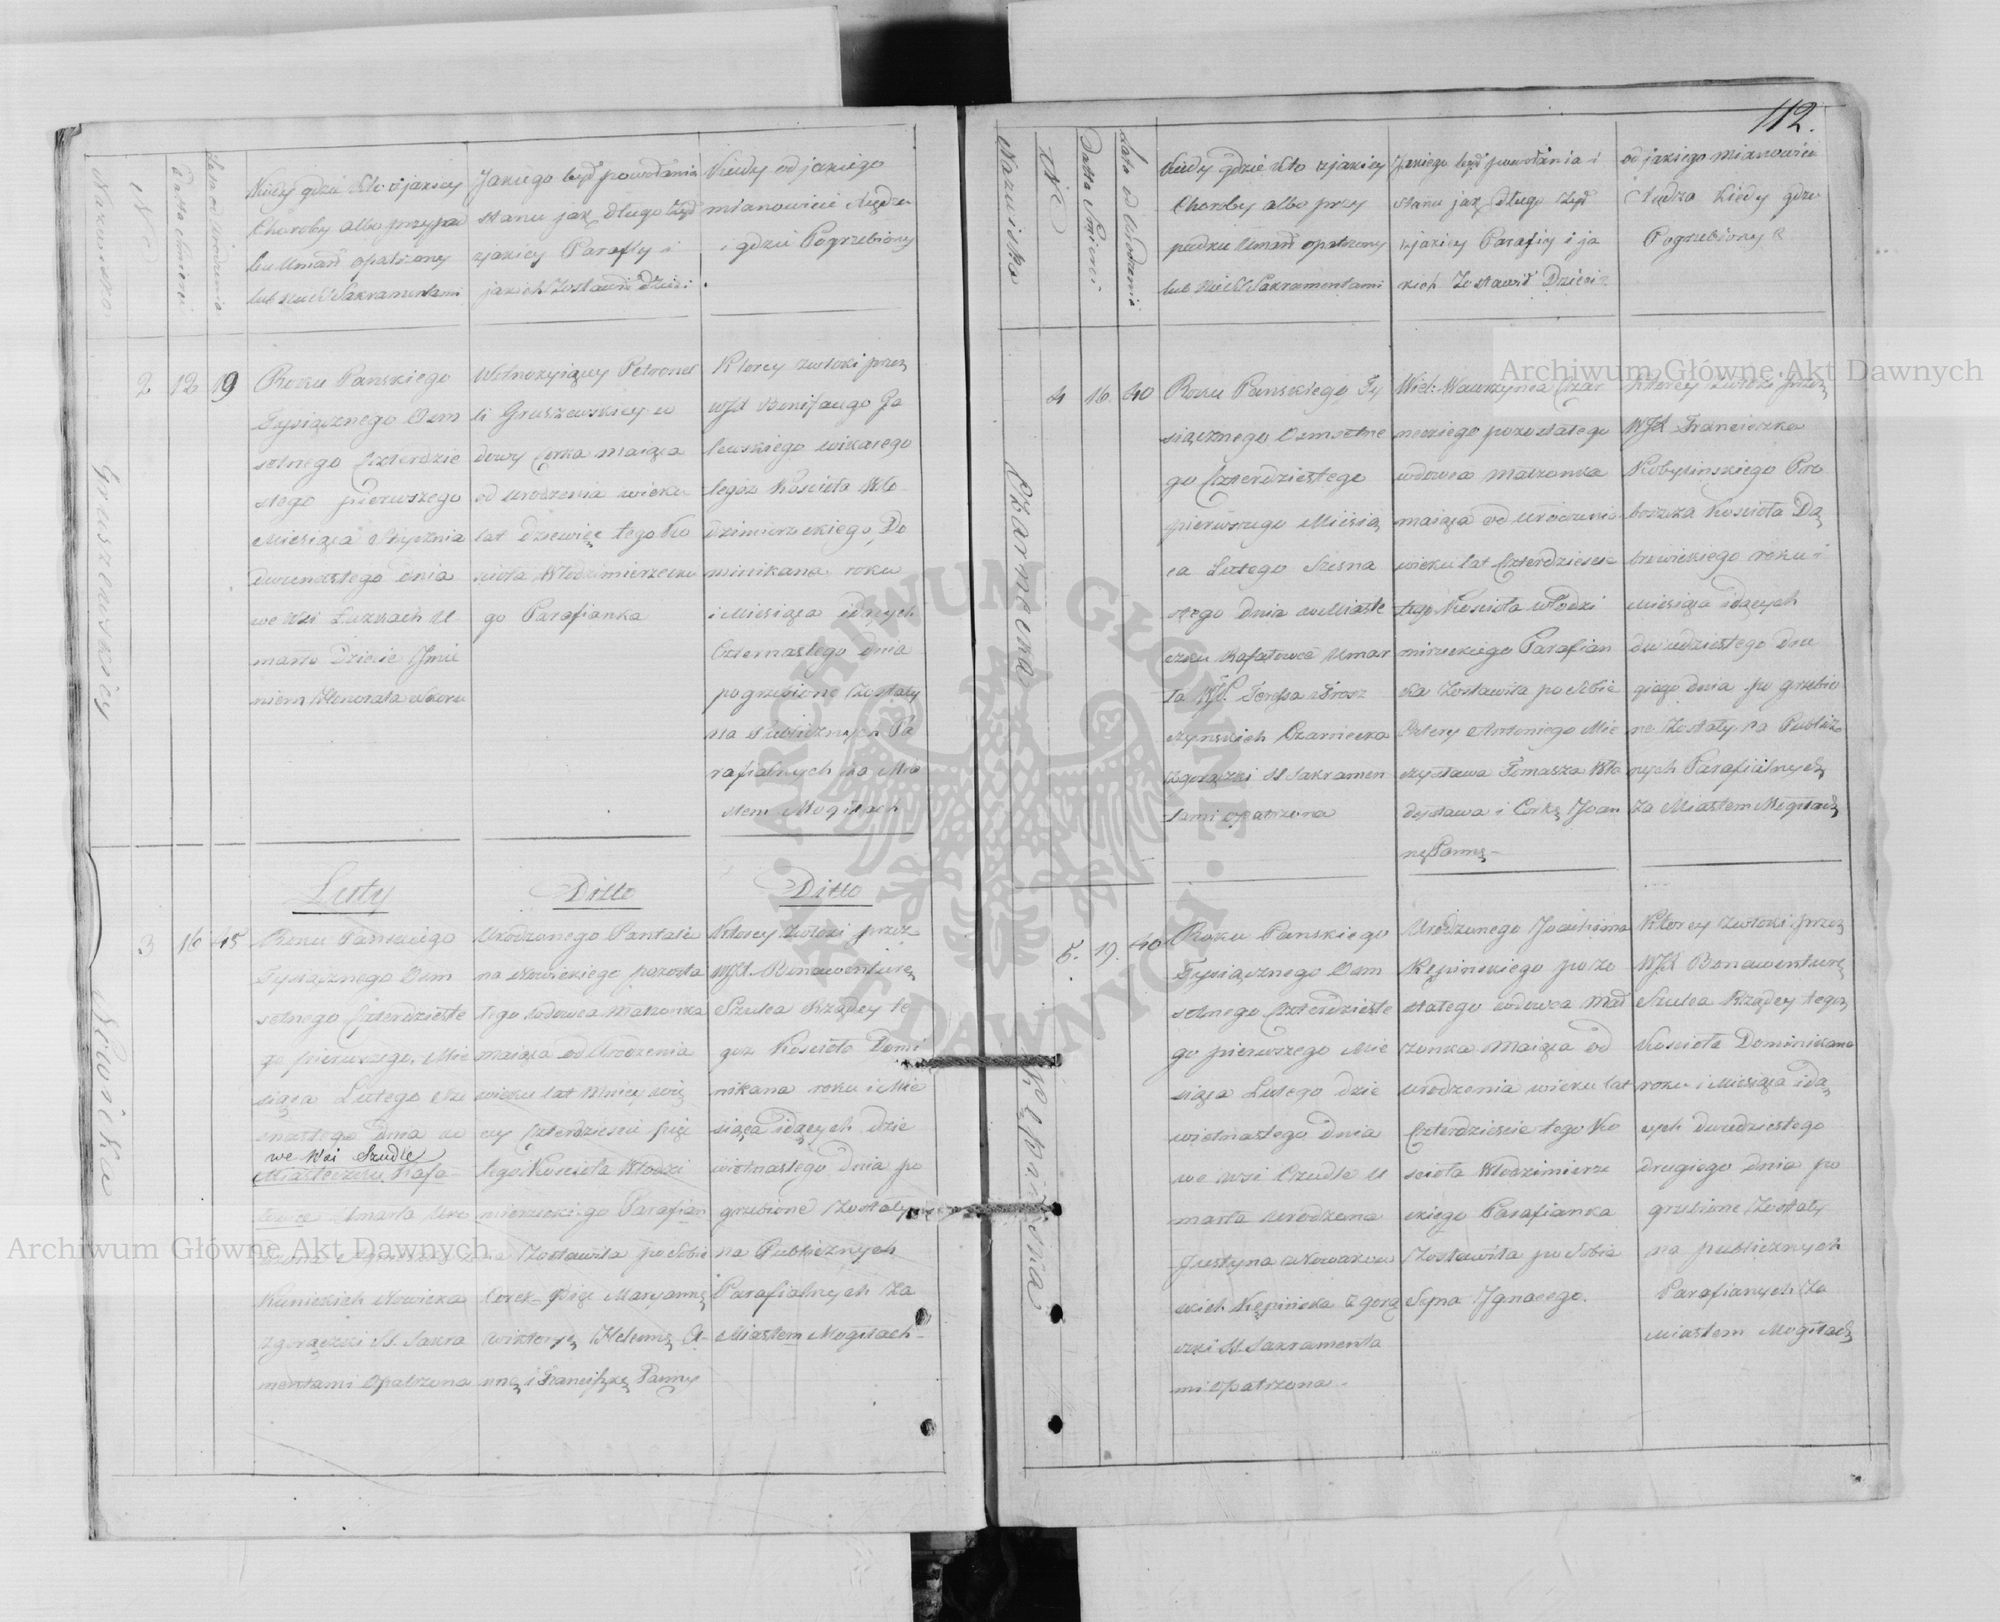 112.
Nazwisko
No
Datta Smierci
Lata od Urodzenia
Kiedy gdzie Kto z jakiey
Choroby albo przypad
ku Umarł opatrzony
lub nie SS Sakramentami
Jakiego był powołania
stanu jak długo żył
z jakiey Parafij i
jakich Zostawił dzieci
Kiedy od jakiego
mianowicie Xiędza
i gdzie Pogrzebiony
Gruszewskiey
2
12
9
Roku Panskiego
Tysiącznego Osm
setnego Czterdzie
stego pierwszego
Miesiąca Stycznia
Dwunastego dnia
we Wsi Łuzkach U
marło Dziecie Imie
niem Honorata Szcru
Wolnożyiącey Petronel
li Gruszewskiey w
dowy Corka maiąca
od urodzenia wieku
lat dziewięc tego Ko
scioła Włodzimierzecko
go Parafianka
Ktorey zwłoki przez
WJX Bonifacego Ga
lewskiego wikarego
tegoz Koscioła Wło
dzimierzeckiego, Do
minikana roku
i Miesiąca idących
Czternastego dnia
pogrzebione zostały
na Publicznych Pa
rafialnych za Mia
stem Mogiłach
Luty
Ditto
Ditto
Nowicka
3
16
45
Roku Panskiego
Tysiącznego Osm
setnego Czterdzieste
go pierwszego Mie
siąca Lutego Sze
snastego Dnia w
we Wsi Czudle
Miasteczku Rafa
łowce Umarła Uro
dzona Agnieszka z
Kunickich Nowicka
z gorączki SS. Sakra
mentami Opatrzona
Urodzonego Pantale
na Nowickiego pozosta
łego wdowca Małżonka
maiąca od Urodzenia
wieku lat mniey wię
cey Czterdziesci pięc
tegoż Koscioła Włodzi
mierzeckiego Parafian
ka Zostawiła po Sobie
Corek Pięc Maryannę
Wiktoryę Helenę A-
nnę i Franciszkę Panny
Ktorey Zwłoki przez
WJX. Bonawenturę
Szulca Rządcy te
goz Koscioła Domi
nikana roku i Mie
siąca idących dzie
wietnastego dnia po
grzebione Zostały
na Publicznych
Parafialnych Za
Miastem Mogiłach-
Nazwisko
No
Datta Smierci
Lata od Urodzenia
Kiedy gdzie Kto z jakiey
Choroby albo przy
padku Umarł opatrzony
lub nie SS Sakramentami
Jakiego był powołania i
stanu jak długo żył
z jakiey Parafiy i ja
kich Zostawił Dzieci
od jakiego mianowicie
Xiędza Kiedy gdzie
Pogrzebiony
Czarniecka
4
16
40
Roku Panskiego Ty
siącznego Osmsetne
go Czterdziestego
pierwszego Miesią
ca Lutego Szesna
stego dnia w Miaste
czku Rafałowce Umar
ła WJ. Teressa z Trosz
czynskich Czarniecka
z gorączki SS Sakramen
tami opatrzona
Wiel: Wawrzynca Czar
neckiego pozostałego
wdowca małzonka
maiąca od urodzenia
wieku lat Czterdziescie
tego Koscioła Włodzi
mirzeckiego Parafian
ka Zostawiła po Sobie
Syny Antoniego Mie
czysława Tomasza Wła
dysława i Corkę Joan
nę Pannę-
Ktorey Zwłoki przez
WJX Franciszka
Kobylinskiego Pro
boszcza Koscioła Dą
browickiego roku i
Miesiąca idących
dwudziestego dru
giego dnia po grzebio
ne Zostały na Publicz
nych Parafialnych
Za Miastem Mogiłach
Kępinska
5.
19.
40
Roku Panskiego
Tysiącznego Osm
setnego Czterdzieste
go pierwszego Mie
siąca Lutego dzie
wietnastego dnia
we wsi Czudle U
marła urodzona
Justyna z Nowakow
skich Kępinska z gorą
czki SS Sakramenta
mi Opatrzona.
Urodzonego Joachima
Kępinskiego pozo
stałego wdowca Mał
żonka Maiąca od
urodzenia wieku lat
Czterdziescie tego Ko
scioła Włodzimierze
ckiego Parafianka
Zostawiła po Sobie
Syna Ignacego.
Ktorey Zwłoki przez
WJX Bonawenturę
Szulca Rządcy tegoż
Koscioła Dominikana
roku i Miesiąca idą
cych dwudziestego
drugiego dnia po
grzebione Zostały
na publicznych
Parafianych Za
Miastem Mogiłach
Archiwum Główne Akt Dawnych
Archiwum Główne Akt Dawnych
ARCHIWUM GŁÓWNE AKT DAWNYCH